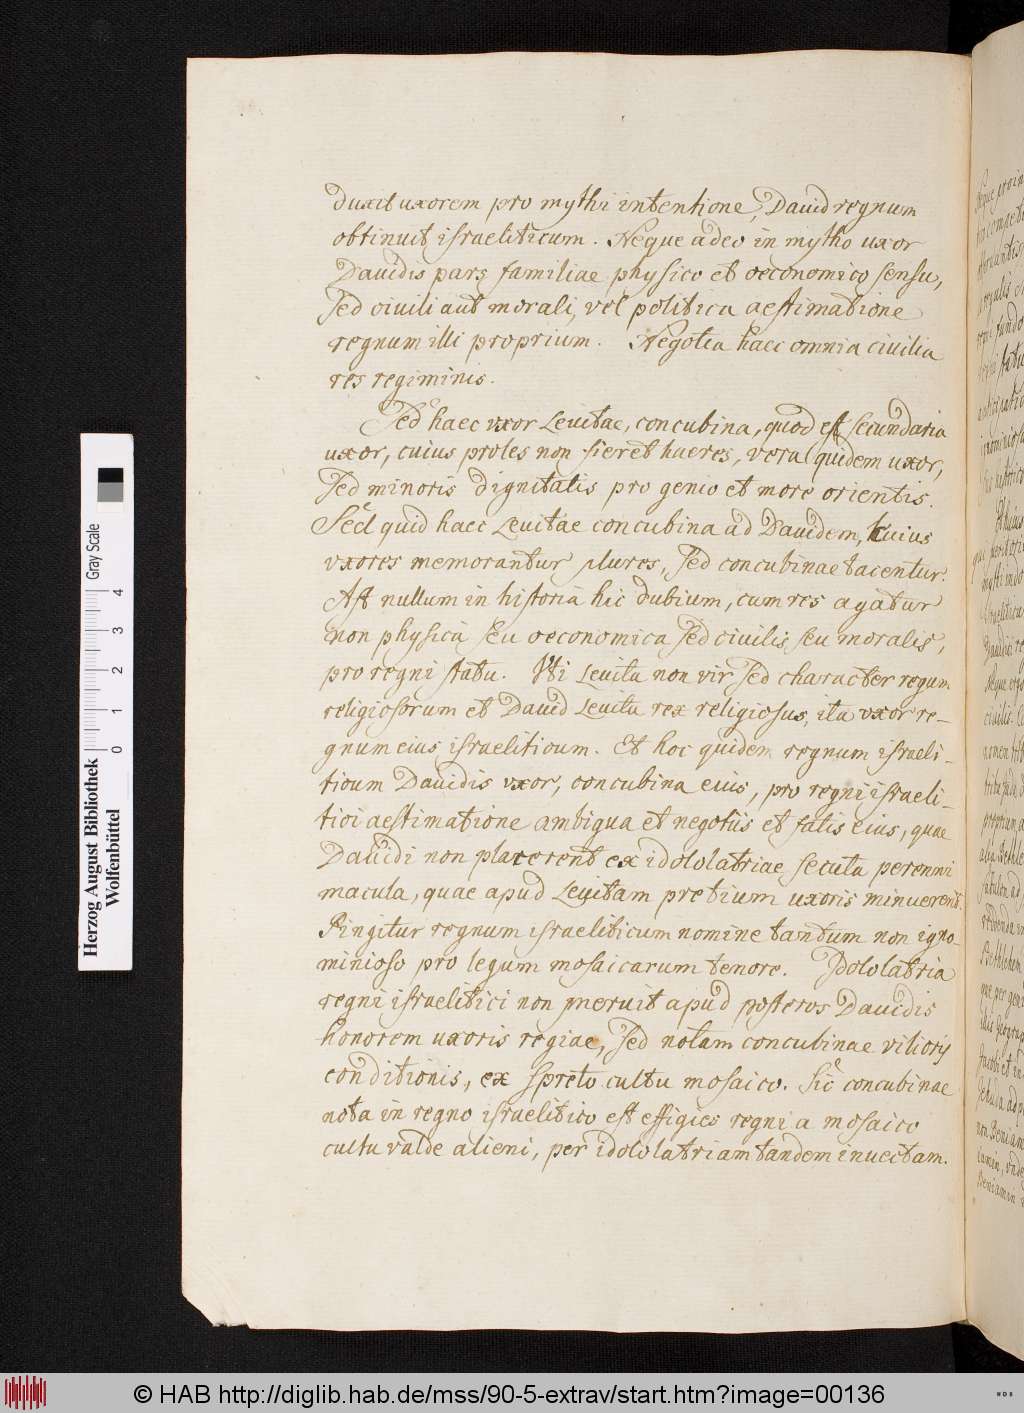 duxit uxorem pro mythi intentione, Dauid regnum
obtinuit israeliticum. Neque adeo in mytho uxor
Dauidis pars familiae physico et oeconomico sensu,
sed ciuili aut morali, vel politica aestimatione
regnum illi proprium. Negotia haec omnia ciuilia
res regiminis.
Sed haec vxor Leuitae, concubina, quod est secundaria
uxor, cuius proles non fieret haeres, vera quidem uxor,
sed minoris dignitatis pro genio et more orientis.
Sed quid haec Leuitae concubina ad Dauidem, cuius
vxores memorantur plures, sed concubinae tacentur.
Ast nullum in historia hic dubium, cum res agatur
non physica seu oeconomica sed ciuilis seu moralis,
pro regni statu. Vti Leuita non vir sed character regum
religiosorum et Dauid Leuita rex religiosus, ita vxor re-
gnum eius israeliticum. Et hoc quidem regnum israeli-
ticum Dauidis vxor, concubina eius, pro regni israeli-
tici aestimatione ambigua et negotiis et fatis eius, quae
Dauidi non placerent ex idololatriae secuta perenni
macula, quae apud Leuitam pretium uxoris minuerent.
Pingitur regnum israeliticum nomine tantum non igno-
minioso pro legum mosaicarum tenore. Idololatria
regni israelitici non meruit apud posteros Dauidis
honorem uxoris regiae, sed notam concubinae vilioris
conditionis, ex spreto cultu mosaico. Sic concubinae
nota in regno israelitico est effigies regni a mosaico
cultu valde alieni, per idololatriam tandem inuectam.
Herzog August Bibliothek
Wolfenbüttel
Gray Scale
0 1 2 3 4
© HAB http://diglib.hab.de/mss/90-5-extrav/start.htm?image=00136